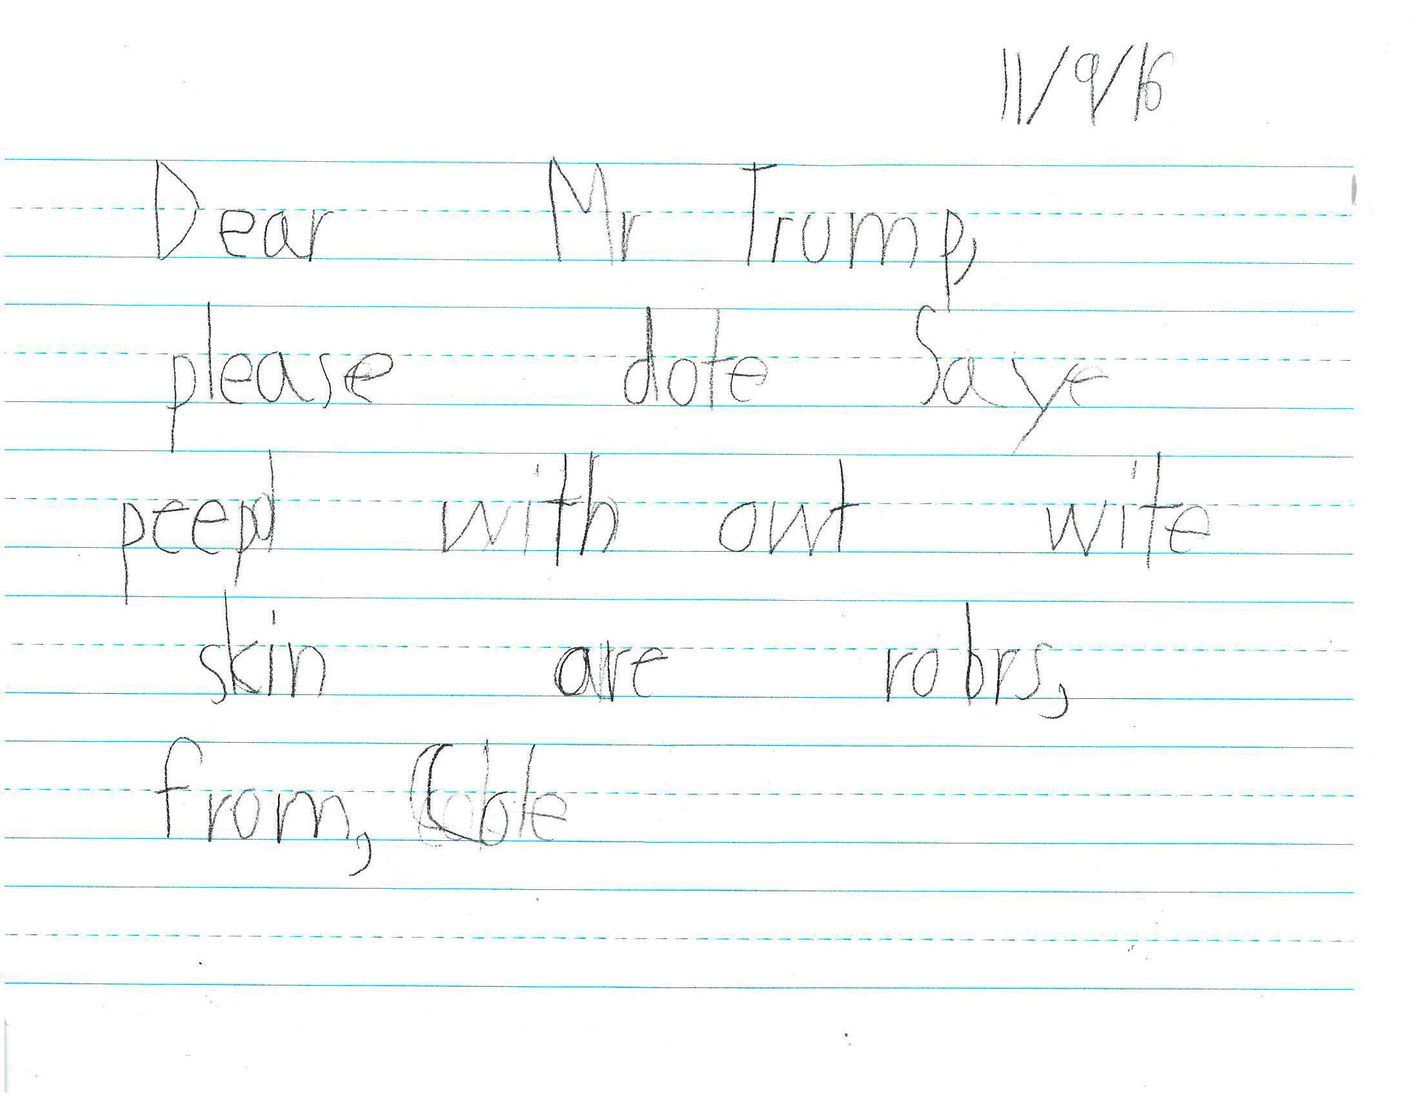 11/9/16
Dear Mr Trump,
please dote Saye
peepl with owt wite
skin are robrs,
from, Cole